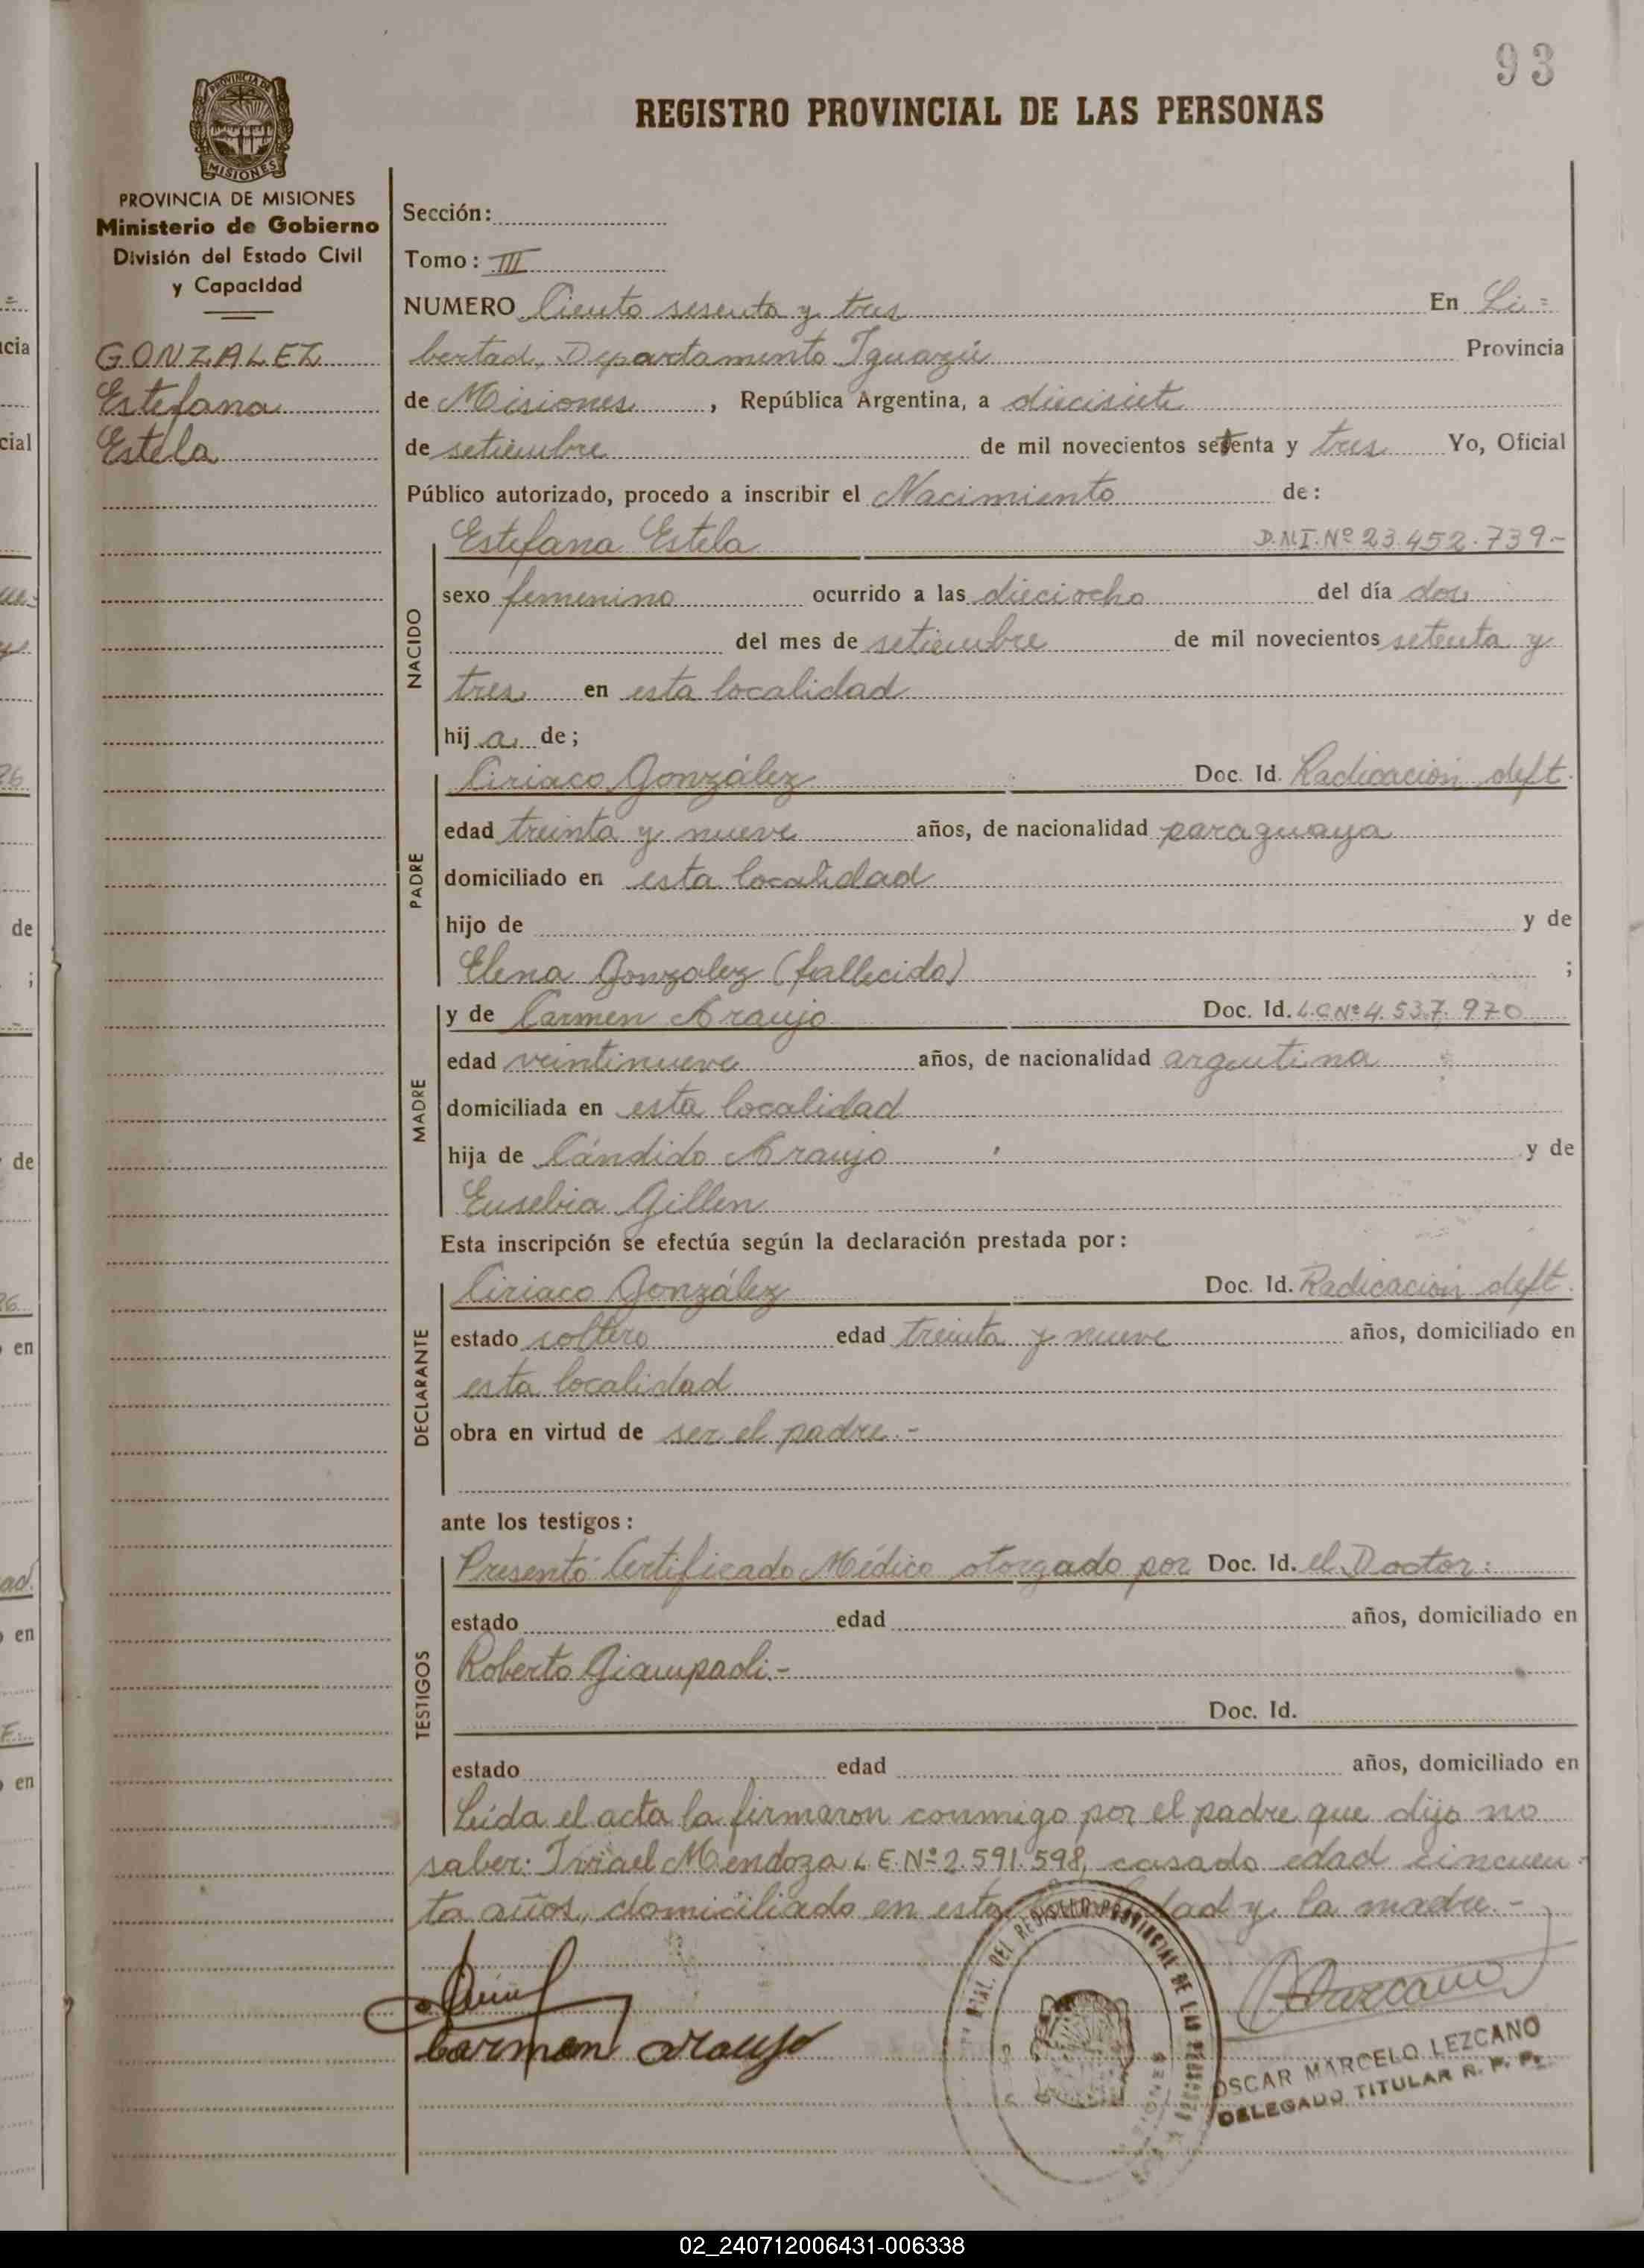 93
REGISTRO PROVINCIAL DE LAS PERSONAS
PROVINCIA DE MISIONES
MISIONES
PROVINCIA DE MISIONES
Ministerio de Gobierno
División del Estado Civil
y Capacidad
GONZALEZ
Estefana
Estela
Sección:
Tomo: III
NUMERO Ciento sesenta y tres En Li=
bertad, Departamento Iguazú Provincia
de Misiones, República Argentina, a diecisiete
de setiembre de mil novecientos setenta y tres Yo, Oficial
Público autorizado, procedo a inscribir el Nacimiento de:
NACIDO
Estefana Estela D.N.I. Nº 23.452.739-
sexo femenino ocurrido a las dieciocho del día dos
del mes de setiembre de mil novecientos setenta y
tres en esta localidad
hija de;
PADRE
Ciriaco González Doc. Id. Radicación deft.
edad treinta y nueve años, de nacionalidad paraguaya
domiciliado en esta localidad
hijo de y de
Elena Gonzalez (fallecida) ;
MADRE
y de Carmen Araujo Doc. Id. L.C Nº 4.537.970
edad veintinueve años, de nacionalidad argentina
domiciliada en esta localidad
hija de Cándido Araujo y de
Eusebia Gillen
Esta inscripción se efectúa según la declaración prestada por:
DECLARANTE
Ciriaco González Doc. Id. Radicación deft.
estado soltero edad treinta y nueve años, domiciliado en
esta localidad
obra en virtud de ser el padre.-
ante los testigos:
TESTIGOS
Presentó Certificado Médico otorgado por Doc. Id. el Doctor:
estado edad años, domiciliado en
Roberto Giampaoli.-
Doc. Id.
estado edad años, domiciliado en
Leída el acta la firmaron conmigo por el padre que dijo no
saber: Mendoza L.E. Nº 2.591.598, casado edad cincuen-
ta años, domiciliado en esta localidad y la madre.-
Carmen Araujo
DEL REGISTRO PROVINCIAL DE LAS
OSCAR MARCELO LEZCANO
DELEGADO TITULAR R. P. P.
02_240712006431-006338